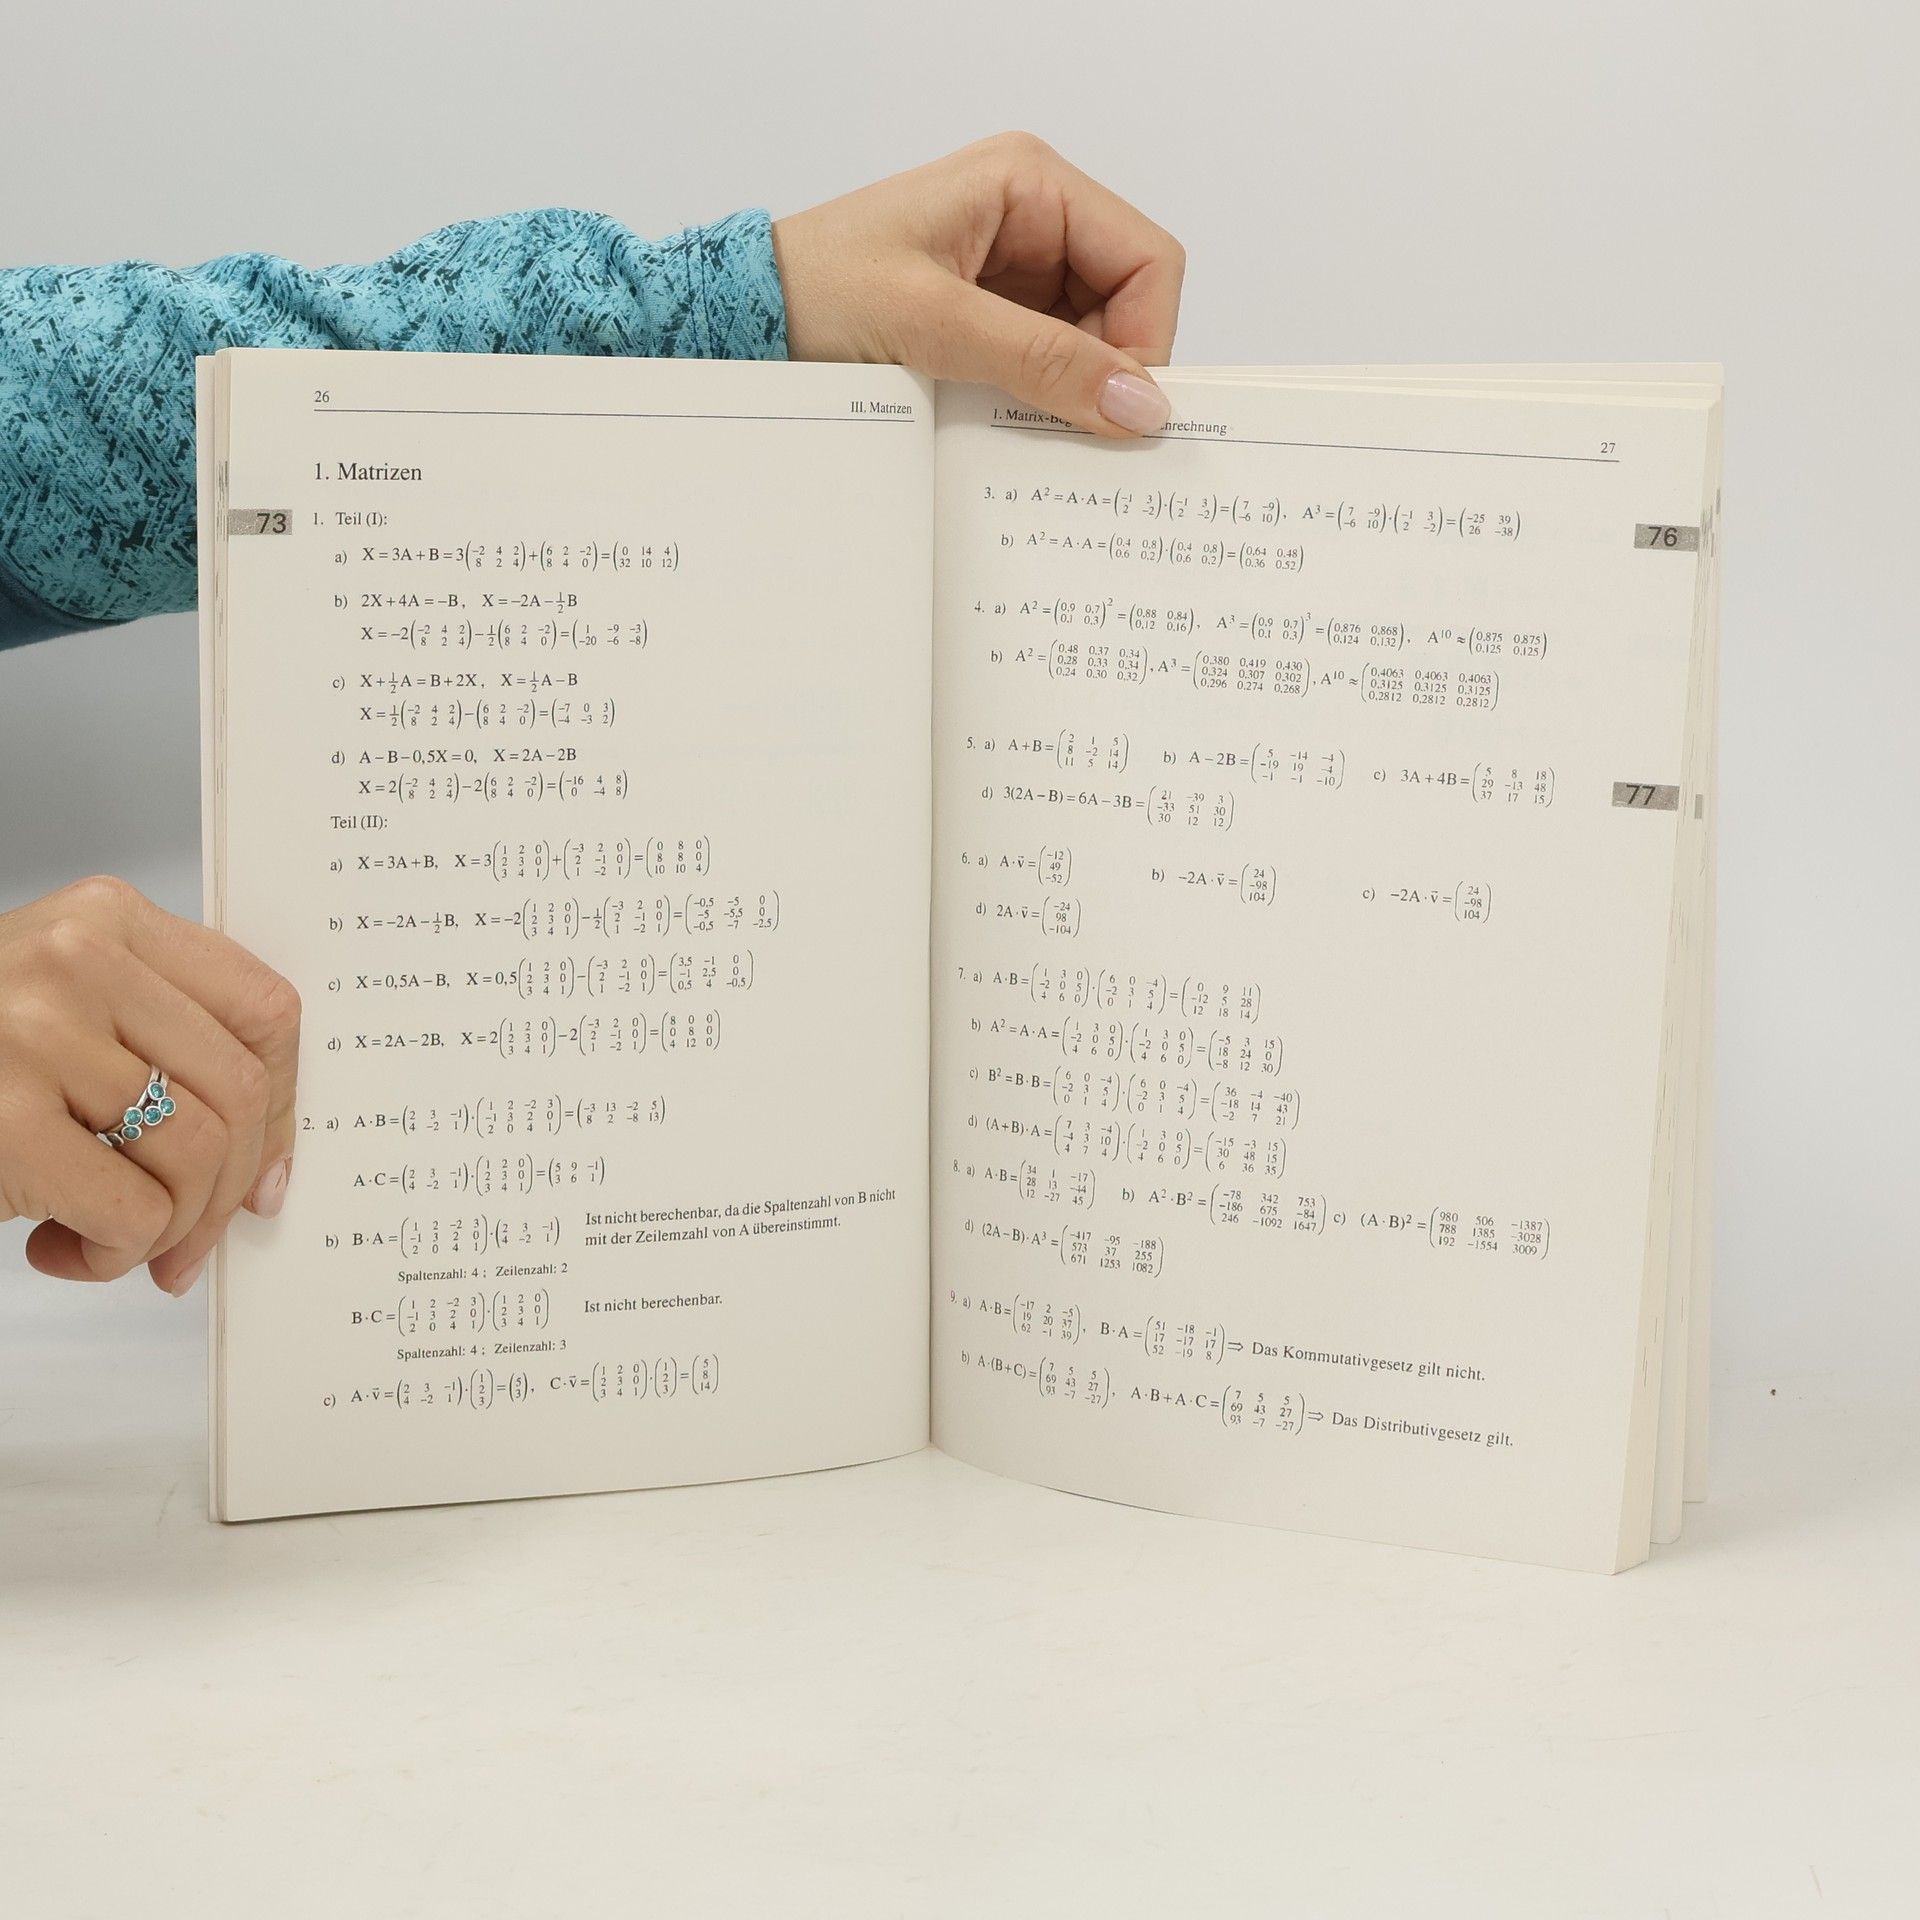 26
III. Matrizen
1. Matrizen
73
1. Teil (I):
a) X = 3A + B = 3(-2 4 2; 8 2 4) + (6 2 -2; 8 4 0) = (0 14 4; 32 10 12)
b) 2X + 4A = -B, X = -2A - 1/2 B
X = -2(-2 4 2; 8 2 4) - 1/2(6 2 -2; 8 4 0) = (1 -9 -3; -20 -6 -8)
c) X + 1/2 A = B + 2X, X = 1/2 A - B
X = 1/2(-2 4 2; 8 2 4) - (6 2 -2; 8 4 0) = (-7 0 3; -4 -3 2)
d) A - B - 0,5X = 0, X = 2A - 2B
X = 2(-2 4 2; 8 2 4) - 2(6 2 -2; 8 4 0) = (-16 4 8; 0 -4 8)
Teil (II):
a) X = 3A + B, X = 3(1 2 0; 2 3 0; 3 4 1) + (-3 2 0; 2 -1 0; 1 -2 1) = (0 8 0; 8 8 0; 10 10 4)
b) X = -2A - 1/2 B, X = -2(1 2 0; 2 3 0; 3 4 1) - 1/2(-3 2 0; 2 -1 0; 1 -2 1) = (-0,5 -5 0; -5 -5,5 0; -0,5 -7 -2,5)
c) X = 0,5A - B, X = 0,5(1 2 0; 2 3 0; 3 4 1) - (-3 2 0; 2 -1 0; 1 -2 1) = (3,5 -1 0; -1 2,5 0; 0,5 4 -0,5)
d) X = 2A - 2B, X = 2(1 2 0; 2 3 0; 3 4 1) - 2(-3 2 0; 2 -1 0; 1 -2 1) = (8 0 0; 0 8 0; 4 12 0)
2. a) A·B = (2 3 -1; 4 -2 1)·(1 2 -2 3; -1 3 2 0; 2 0 4 1) = (-3 13 -2 5; 8 2 -8 13)
A·C = (2 3 -1; 4 -2 1)·(1 2 0; 2 3 0; 3 4 1) = (5 9 -1; 3 6 1)
b) B·A = (1 2 -2 3; -1 3 2 0; 2 0 4 1)·(2 3 -1; 4 -2 1) Ist nicht berechenbar, da die Spaltenzahl von B nicht
mit der Zeilemzahl von A übereinstimmt.
Spaltenzahl: 4 ; Zeilenzahl: 2
B·C = (1 2 -2 3; -1 3 2 0; 2 0 4 1)·(1 2 0; 2 3 0; 3 4 1) Ist nicht berechenbar.
Spaltenzahl: 4 ; Zeilenzahl: 3
c) A·v⃗ = (2 3 -1; 4 -2 1)·(1; 2; 3) = (5; 3), C·v⃗ = (1 2 0; 2 3 0; 3 4 1)·(1; 2; 3) = (5; 8; 14)
1. Matrix-Beg
nrechnung
27
3. a) A² = A·A = (-1 3; 2 -2)·(-1 3; 2 -2) = (7 -9; -6 10), A³ = (7 -9; -6 10)·(-1 3; 2 -2) = (-25 39; 26 -38)
76
b) A² = A·A = (0.4 0.8; 0.6 0.2)·(0.4 0.8; 0.6 0.2) = (0.64 0.48; 0.36 0.52)
4. a) A² = (0,9 0,7; 0,1 0,3)² = (0,88 0,84; 0,12 0,16), A³ = (0,9 0,7; 0,1 0,3)³ = (0,876 0,868; 0,124 0,132), A¹⁰ ≈ (0,875 0,875; 0,125 0,125)
b) A² = (0,48 0,37 0,34; 0,28 0,33 0,34; 0,24 0,30 0,32), A³ = (0,380 0,419 0,430; 0,324 0,307 0,302; 0,296 0,274 0,268), A¹⁰ ≈ (0,4063 0,4063 0,4063; 0,3125 0,3125 0,3125; 0,2812 0,2812 0,2812)
5. a) A + B = (2 1 5; 8 -2 14; 11 5 14) b) A - 2B = (5 -14 -4; -19 19 -4; -1 -1 -10) c) 3A + 4B = (5 8 18; 29 -13 48; 37 17 15)
77
d) 3(2A - B) = 6A - 3B = (21 -39 3; -33 51 30; 30 12 12)
6. a) A·v⃗ = (-12; 49; -52) b) -2A·v⃗ = (24; -98; 104) c) -2A·v⃗ = (24; -98; 104)
d) 2A·v⃗ = (-24; 98; -104)
7. a) A·B = (1 3 0; -2 0 5; 4 6 0)·(6 0 -4; -2 3 5; 0 1 4) = (0 9 11; -12 5 28; 12 18 14)
b) A² = A·A = (1 3 0; -2 0 5; 4 6 0)·(1 3 0; -2 0 5; 4 6 0) = (-5 3 15; 18 24 0; -8 12 30)
c) B² = B·B = (6 0 -4; -2 3 5; 0 1 4)·(6 0 -4; -2 3 5; 0 1 4) = (36 -4 -40; -18 14 43; -2 7 21)
d) (A+B)·A = (7 3 -4; -4 3 10; 4 7 4)·(1 3 0; -2 0 5; 4 6 0) = (-15 -3 15; 30 48 15; 6 36 35)
8. a) A·B = (34 1 -17; 28 13 -44; 12 -27 45) b) A²·B² = (-78 342 753; -186 675 -84; 246 -1092 1647) c) (A·B)² = (980 506 -1387; 788 1385 -3028; 192 -1554 3009)
d) (2A-B)·A³ = (-417 -95 -188; 573 37 255; 671 1253 1082)
9. a) A·B = (-17 2 -5; 19 20 37; 62 -1 39), B·A = (51 -18 -1; 17 -17 17; 52 -19 8) ⇒ Das Kommutativgesetz gilt nicht.
b) A·(B+C) = (7 5 5; 69 43 27; 93 -7 -27), A·B + A·C = (7 5 5; 69 43 27; 93 -7 -27) ⇒ Das Distributivgesetz gilt.